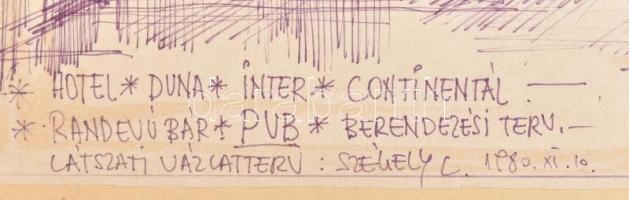 * HOTEL * DUNA * INTER * CONTINENTAL. —
* RANDEVÚ BÁR * PUB * BERENDEZÉSI TERV. —
LÁTSZATI VÁZLATTERV : SZÉKELY L. 1980. XI. 10.